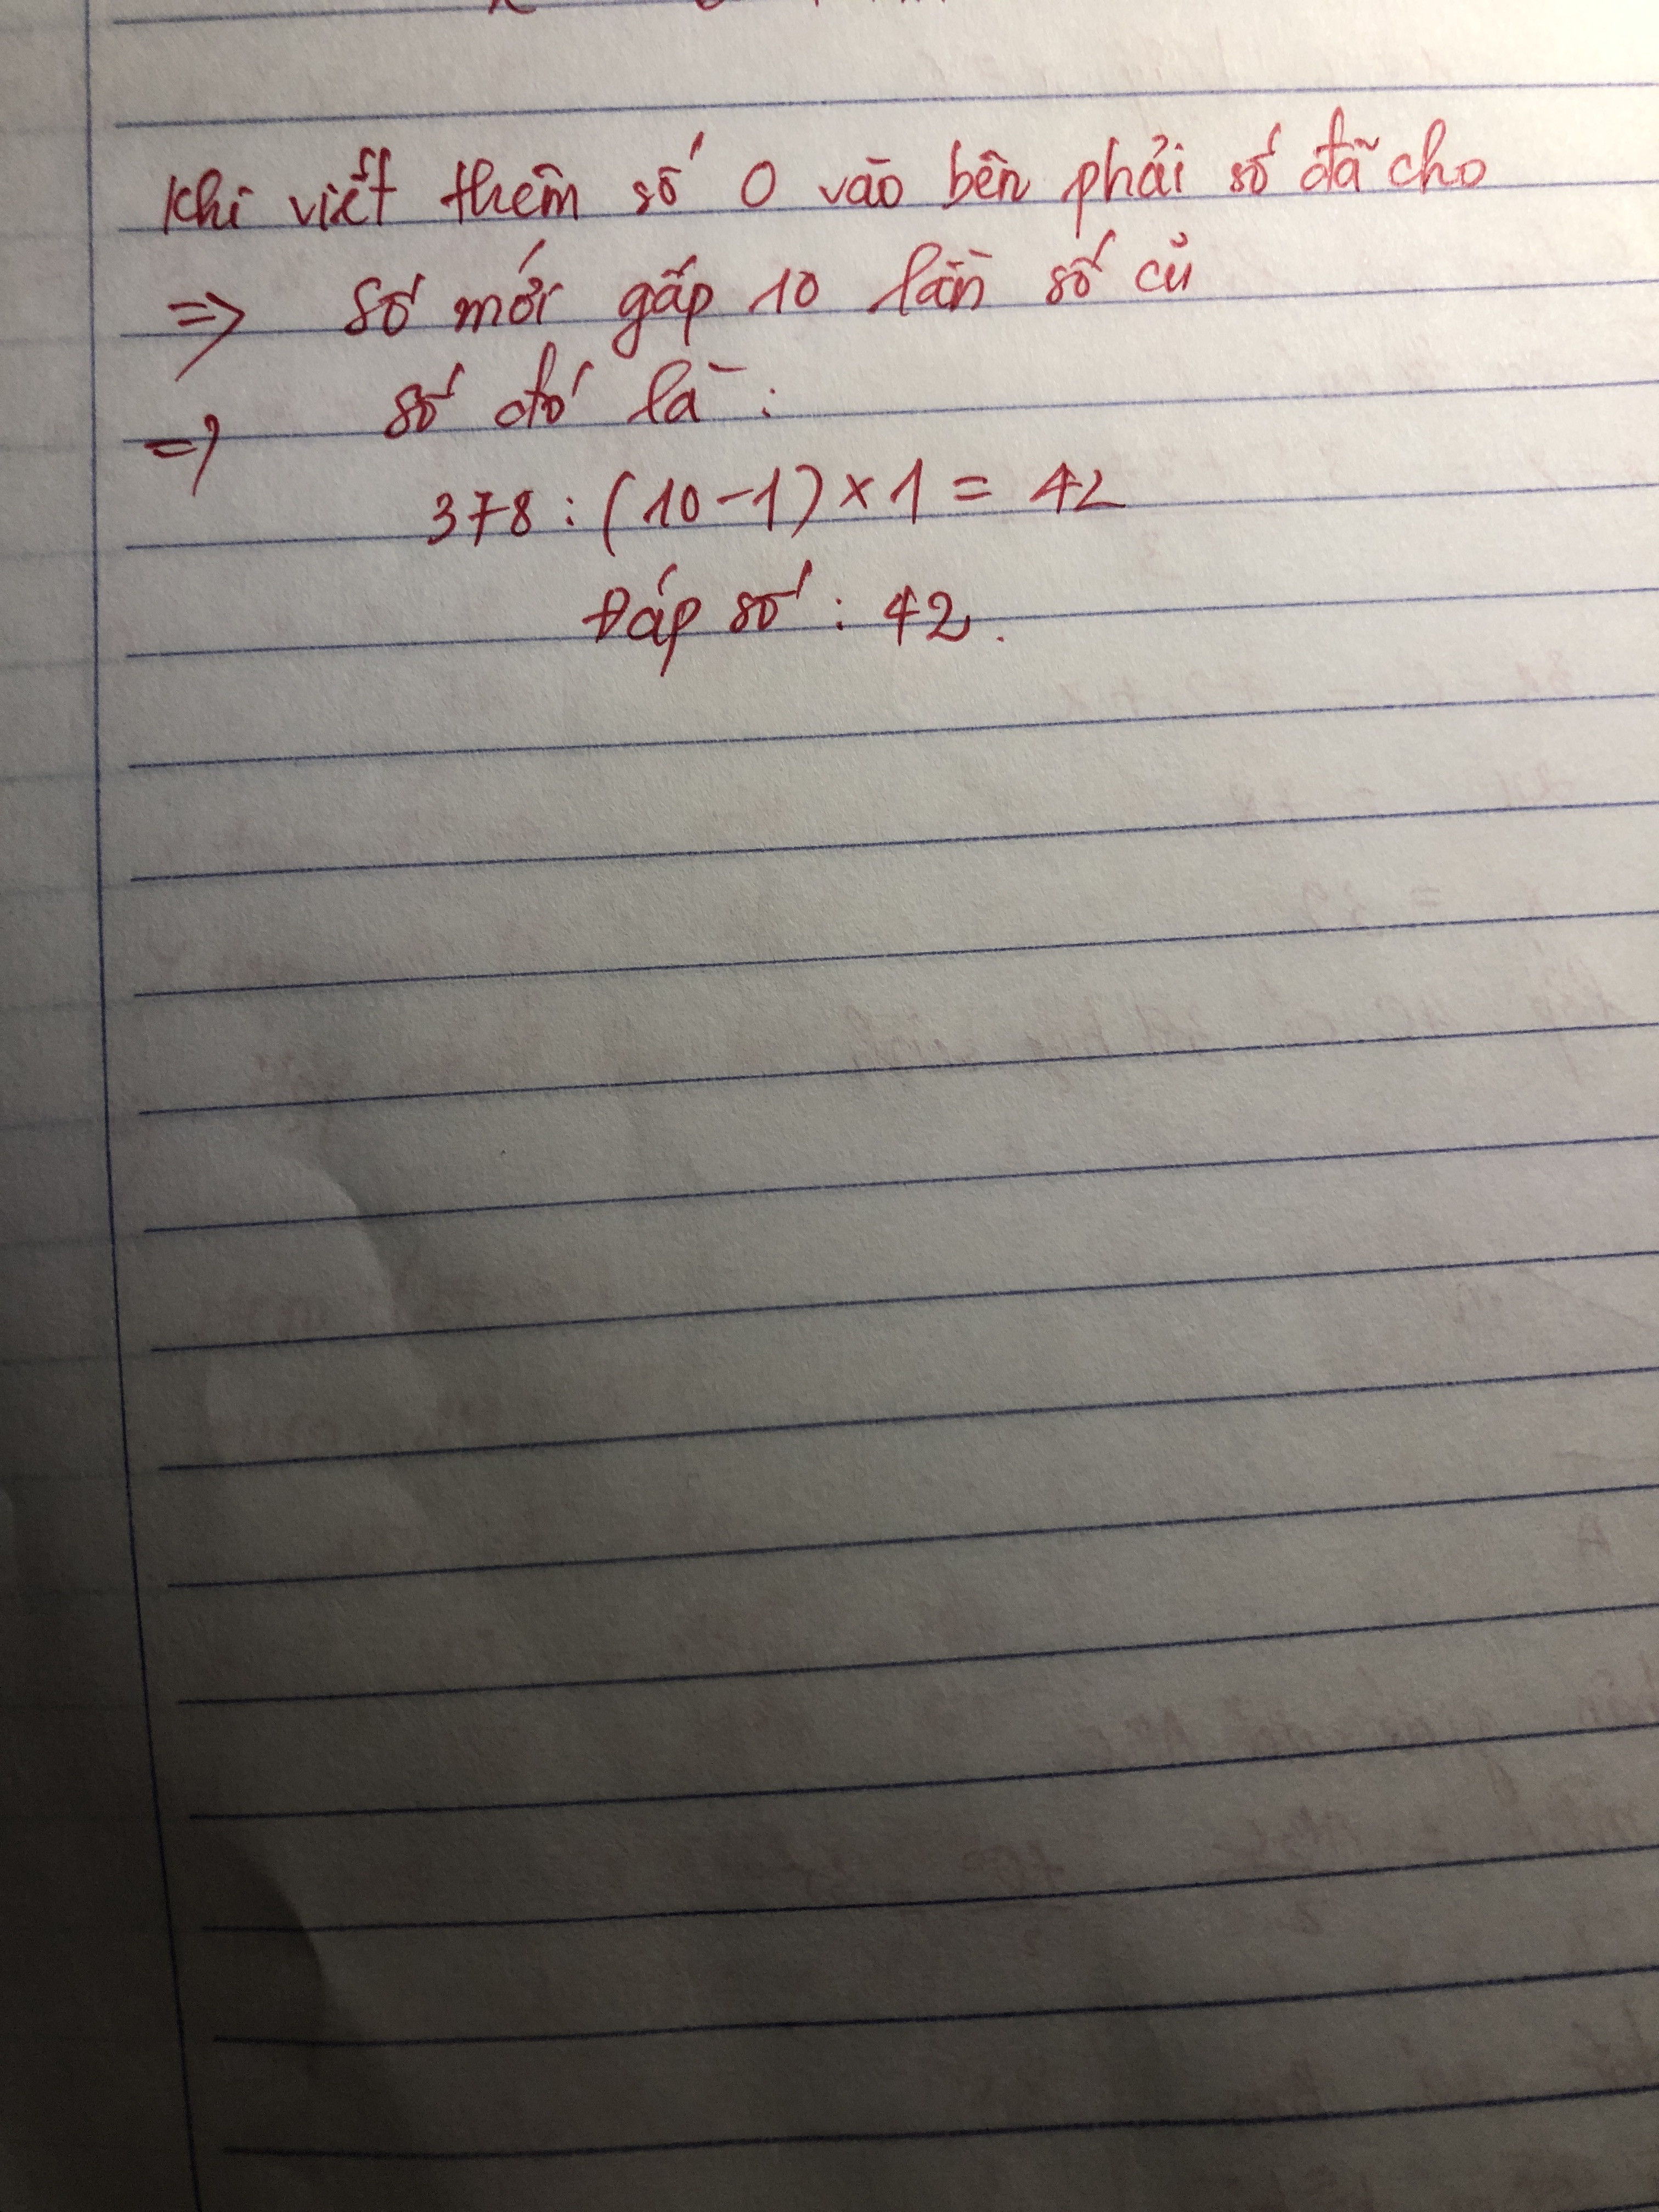 Khi viết thêm số 0 vào bên phải số đã cho
=> Số mới gấp 10 lần số củ
=> Số đó là :
378 : (10-1) × 1 = 42
Đáp số : 42.